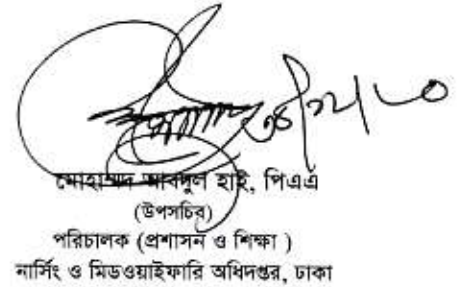 মোহাম্মদ আবদুল হাই, পিএএ
(উপসচিব)
পরিচালক (প্রশাসন ও শিক্ষা )
নার্সিং ও মিডওয়াইফারি অধিদপ্তর, ঢাকা